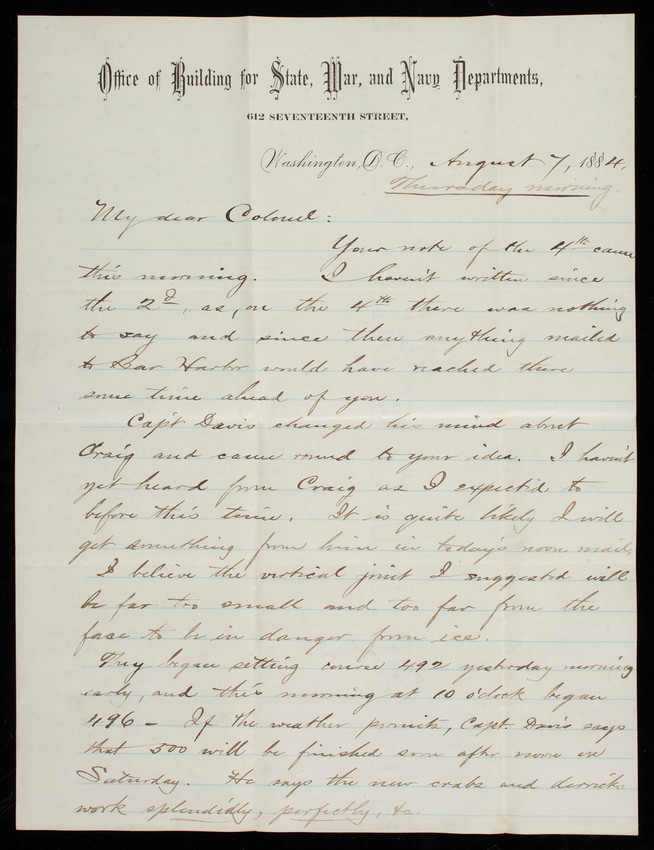 Office of Building for State, War, and Navy Departments,
612 SEVENTEENTH STREET,
Washington, D.C., August 7, 1884.
Thursday morning.
My dear Colonel:
Your note of the 4th came
this morning. I haven't written since
the 2d, as, on the 4th there was nothing
to say and since then anything mailed
to Bar Harbor would have reached there
some time ahead of you.
Capt Davis changed his mind about
Craig and came round to your idea. I haven't
yet heard from Craig as I expected to
before this time. It is quite likely I will
get something from him in today's noon mail.
I believe the vertical joint I suggested will
be far too small and too far from the
face to be in danger from ice.
They began setting course 492 yesterday morning
early, and this morning at 10 o'clock began
496 - If the weather permits, Capt. Davis says
that 500 will be finished soon after noon on
Saturday. He says the new crabs and derricks
work splendidly, perfectly, &c.